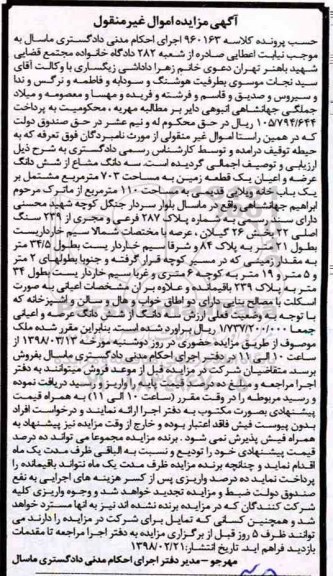 آگهی مزایده اموال غیر منقول
حسب پرونده کلاسه ۹۶۰۱۶۳ اجرای احکام مدنی دادگستری ماسال به
موجب نیابت اعطایی صادره از شعبه ۲۸۲ دادگاه خانواده مجتمع قضایی
شهید باهنر تهران دعوی خانم زهرا داداشی زیگساری با وکالت آقای
سید نجات موسوی بطرفیت هوشنگ و سودابه و فاطمه و نرگس و ندا
و سیروس و صدیق و قاسم و فرشته و فریده و مهسا و معصومه و میلاد
جملگی جهانشاهی اتیوهی دایر بر مطالبه مهریه ، محکومیت به پرداخت
۱۰۵/۷۹۴/۶۴۴ ریال در حق محکوم له و نیم عشر در حق صندوق دولت
که در همین راستا اموال غیر منقولی از مورث نامبردگان فوق تعرفه که به
حیطه توقیف درامده و توسط کارشناس رسمی دادگستری به شرح ذیل
ارزیابی و توصیف اجمالی گردیده است. سه دانگ مشاع از شش دانگ
عرصه و اعیان یک قطعه زمین به مساحت ۷۰۳ مترمربع مشتمل بر
یک باب خانه ویلایی قدیمی به مساحت ۱۱۰ مترمربع از ماترک مرحوم
ابراهیم جهانشاهی واقع در ماسال بلوار سردار جنگل کوچه شهید محسنی
دارای سند رسمی به شماره پلاک ۲۸۷ فرعی و مجزی از ۲۳۹ سنگ
اصلی ۲۲ بخش ۲۶ گیلان ، عرصه با مختصات شمالا سیم خارداریست
بطول ۲۱ متر به پلاک ۸۴ و شرقا سیم خاردار یست بطول ۳۴/۵ متر
به مقدار زمینی که در مسیر کوچه قرار گرفته و جنوبا بطولهای ۲ متر
و ۵ متر و ۱۹ متر به کوچه ۶ متری و غربا سیم خاردار یست بطول ۳۴
متر به پلاک ۲۳۹ باقیمانده و علاوه بر آن مشخصات اعیانی به صورت
اسکلت با مصالح بنایی دارای دو اطاق خواب و هال و سالن و آشپزخانه که
با توجه به وضعیت فعلی ارزش سه دانگ مشاع از شش دانگ عرصه و اعیانی
جمعا ۱/۷۳۳/۲۰۰/۰۰۰ ریال براورد شده است. بنابراین مقرر شده ملک
موصوف از طریق مزایده حضوری در روز دوشنبه مورخه ۱۳۹۸/۰۳/۱۳ از
ساعت ۱۰ الی ۱۱ در دفتر اجرای احکام مدنی دادگستری ماسال بفروش
برسد. متقاضیان شرکت در مزایده قبل از موعد فروش میتوانند به دفتر
اجرا مراجعه و مبلغ ده درصد قیمت پایه را واریز و رسید دریافت نموده
و رسید مربوطه را در وقت مقرر (ساعت ۱۰ الی ۱۱) به همراه قیمت
پیشنهادی بصورت مکتوب به دفتر اجرا ارائه نمایند و درخواست افراد
بدون پیوست فیش فاقد اعتبار بوده و خارج از وقت مزایده نیز پیشنهاد به
همراه فیش پذیرش نمی شود. برنده مزایده مجموعا می تواند ده درصد
قیمت پیشنهادی خود را تودیع و نسبت به الباقی ظرف مدت یک ماه
اقدام نماید و چنانچه برنده مزایده ظرف مدت یک ماه نتواند باقیمانده را
پرداخت نماید ده درصد واریزی پس از کسر هزینه های اجرایی به نفع
صندوق دولت ضبط و مزایده تجدید خواهد شد و وجوه واریزی کلیه
شرکت کنندگان که در مزایده برنده نشده اند نیز به انها مسترد خواهد
شد و همچنین کسانی که تمایل برای شرکت در مزایده را دارند می
توانند ظرف ۵ روز قبل از برگزاری مزایده به دفتر اجرا مراجعه تا مقدمات
بازدید فراهم اید. تاریخ انتشار: ۱۳۹۸/۰۲/۲۱
مهرجو – مدیر دفتر اجرای احکام مدنی دادگستری ماسال